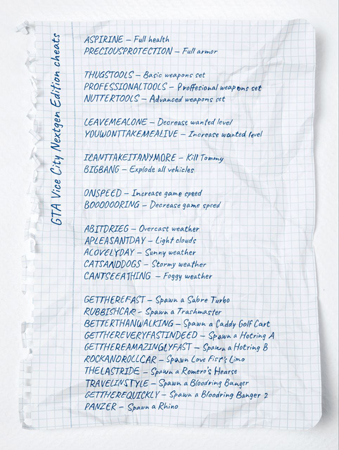 GTA Vice City Nextgen Edition cheats
ASPIRINE – Full health
PRECIOUSPROTECTION – Full armor
THUGSTOOLS – Basic weapons set
PROFESSIONALTOOLS – Proffesional weapons set
NUTTERTOOLS – Advanced weapons set
LEAVEMEALONE – Decrease wanted level
YOUWONTTAKEMEALIVE – Increase wanted level
ICANTTAKEITANYMORE – Kill Tommy
BIGBANG – Explode all vehicles
ONSPEED – Increase game speed
BOOOOOORING – Decrease game speed
ABITDRIEG – Overcast weather
APLEASANTDAY – Light clouds
ALOVELYDAY – Sunny weather
CATSANDDOGS – Stormy weather
CANTSEEATHING – Foggy weather
GETTHEREFAST – Spawn a Sabre Turbo
RUBBISHCAR – Spawn a Trashmaster
BETTERTHANWALKING – Spawn a Caddy Golf Cart
GETTHEREVERYFASTINDEED – Spawn a Hotring A
GETTHEREAMAZINGLYFAST – Spawn a Hotring B
ROCKANDROLLCAR – Spawn Love Fist's Limo
THELASTRIDE – Spawn a Romero's Hearse
TRAVELINSTYLE – Spawn a Bloodring Banger
GETTHEREQUICKLY – Spawn a Bloodring Banger 2
PANZER – Spawn a Rhino